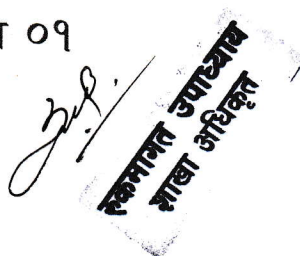 09
रुकमागत उपाध्याय
शाखा अधिकृत